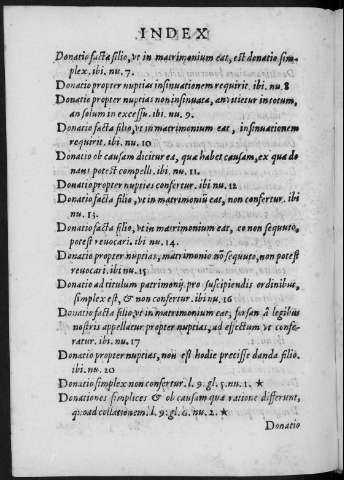 INDEX
Donatio facta filio, vt in matrimonium eat, est donatio sim-
plex. ibi. nu. 7.
Donatio propter nuptias insinuationem requirit. ibi. nu. 8
Donatio propter nuptias non insinuata, an vitietur in totum,
an solum in excessu. ibi nu. 9.
Donatio facta filio, vt in matrimonium eat, insinuationem
requirit. ibi nu. 10
Donatio ob causam dicitur ea, quæ habet causam, ex qua do
nans potest compelli. ibi nu. 11.
Donatio propter nuptias confertur. ibi nu. 12
Donatio facta filio, vt in matrimoniũ eat, non confertur. ibi
nu. 13.
Donatio facta filio, vt in matrimonium eat, eo non sequuto,
potest revocari. ibi nu. 14.
Donatio propter nuptias, matrimonio nõ sequuto, non potest
revocari. ibi nu. 15
Donatio ad titulum patrimonij pro suscipiendis ordinibus,
simplex est, & non confertur. ibi nu. 16
Donatio facta filio, vt in matrimonium eat, forsan à legibus
nostris appellatur propter nuptias, ad effectum vt confe-
ratur. ibi nu. 17
Donatio propter nuptias, non est hodie precisse danda filio.
ibi. nu. 20
Donatio simplex non confertur. l. 9. gl. 5. nu. 1. ★
Donationes simplices & ob causam qua ratione differunt,
quoad collationem. l. 9. gl. 6. nu. 2. ★
Donatio